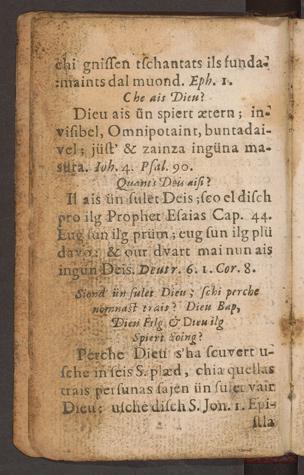 chi gnissen tschantats ils funda-
:maints dal muond. Eph. 1.
Che ais Dieu?
Dieu ais ün spiert ætern; in-
visibel, Omnipotaint, buntadai-
vel; jüst' & zainza ingüna ma-
sura. Joh. 4. Psal. 90.
Quants Deis aise?
Il ais ün sulet Deis; sco el disch
pro ilg Prophet Esaias Cap. 44.
Eug sun ilg prüm; eug sun ilg plü
davo; & our dvart mai nun ais
ingün Deis. Deutr. 6. 1. Cor. 8.
Siond ün sulet Dieu; schi perche
nomnast trais? Dieu Bap,
Dieu Filg, & Dieu ilg
Spiert Soing?
Perche Dieu s'ha scuvert u-
sche in seis S. plæd, chia quellas
trais persunas sajen ün sulet vair
Dieu; usche disch S. Jon. 1. Epi-
stla